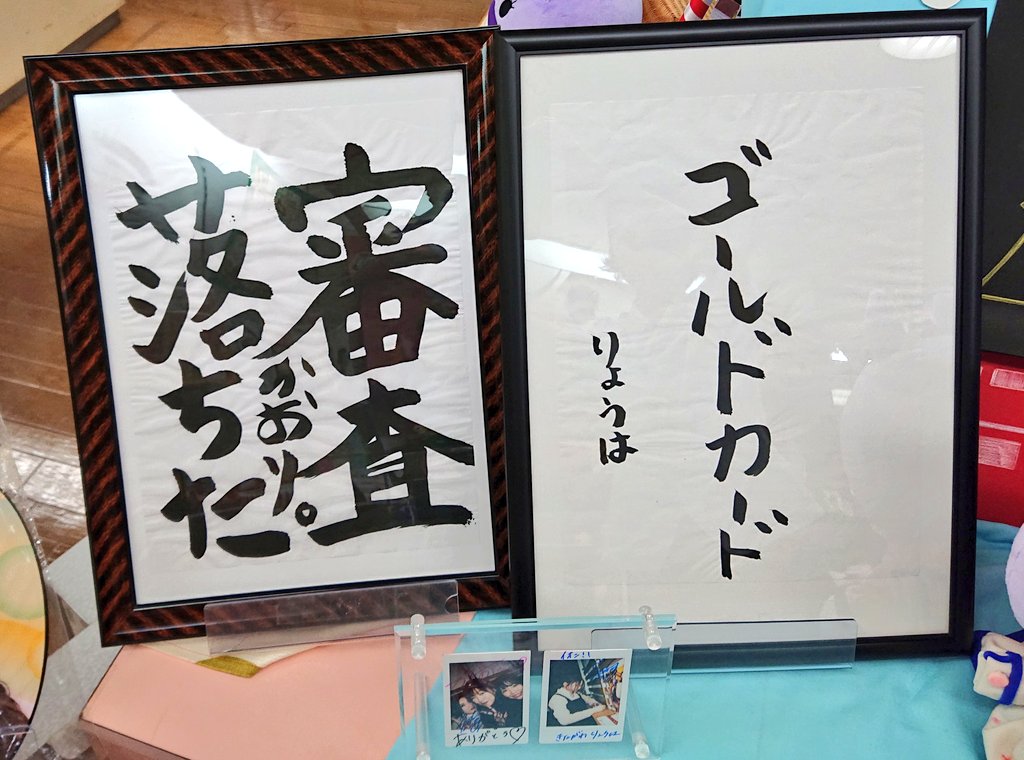 ゴールドカード
りょうは
審査
かおり。
落ちた
ありがとう♡
イオン!!